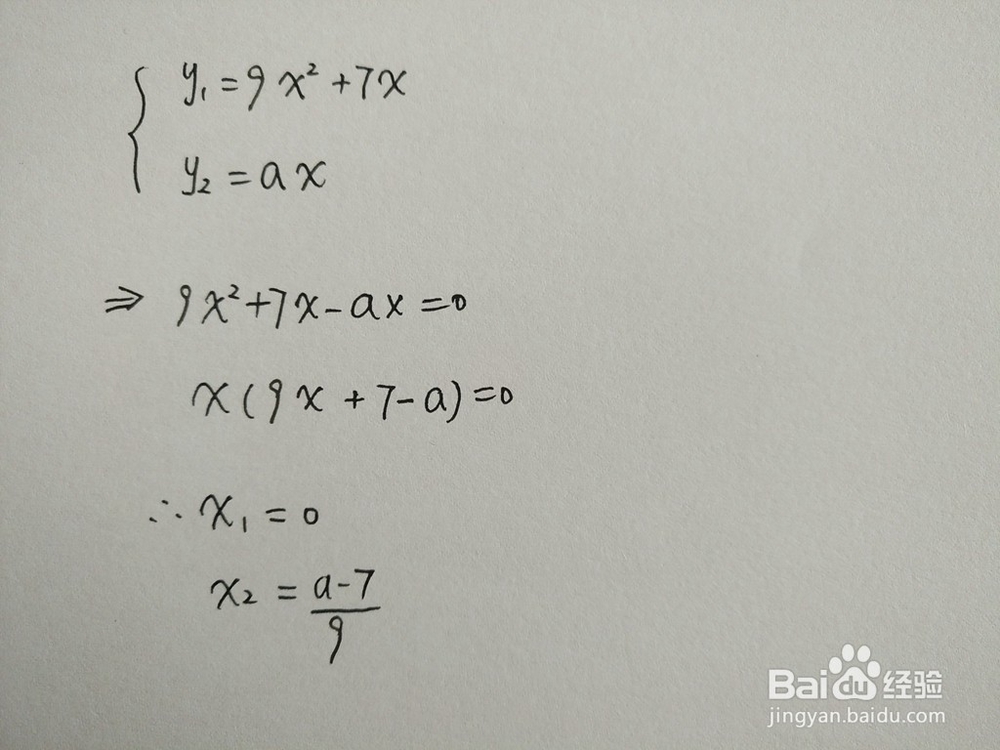 { y₁ = 9x² + 7x
y₂ = ax
⇒ 9x² + 7x - ax = 0
x(9x + 7 - a) = 0
∴ x₁ = 0
x₂ = (a-7)/9
Baidu经验
jingyan.baidu.com